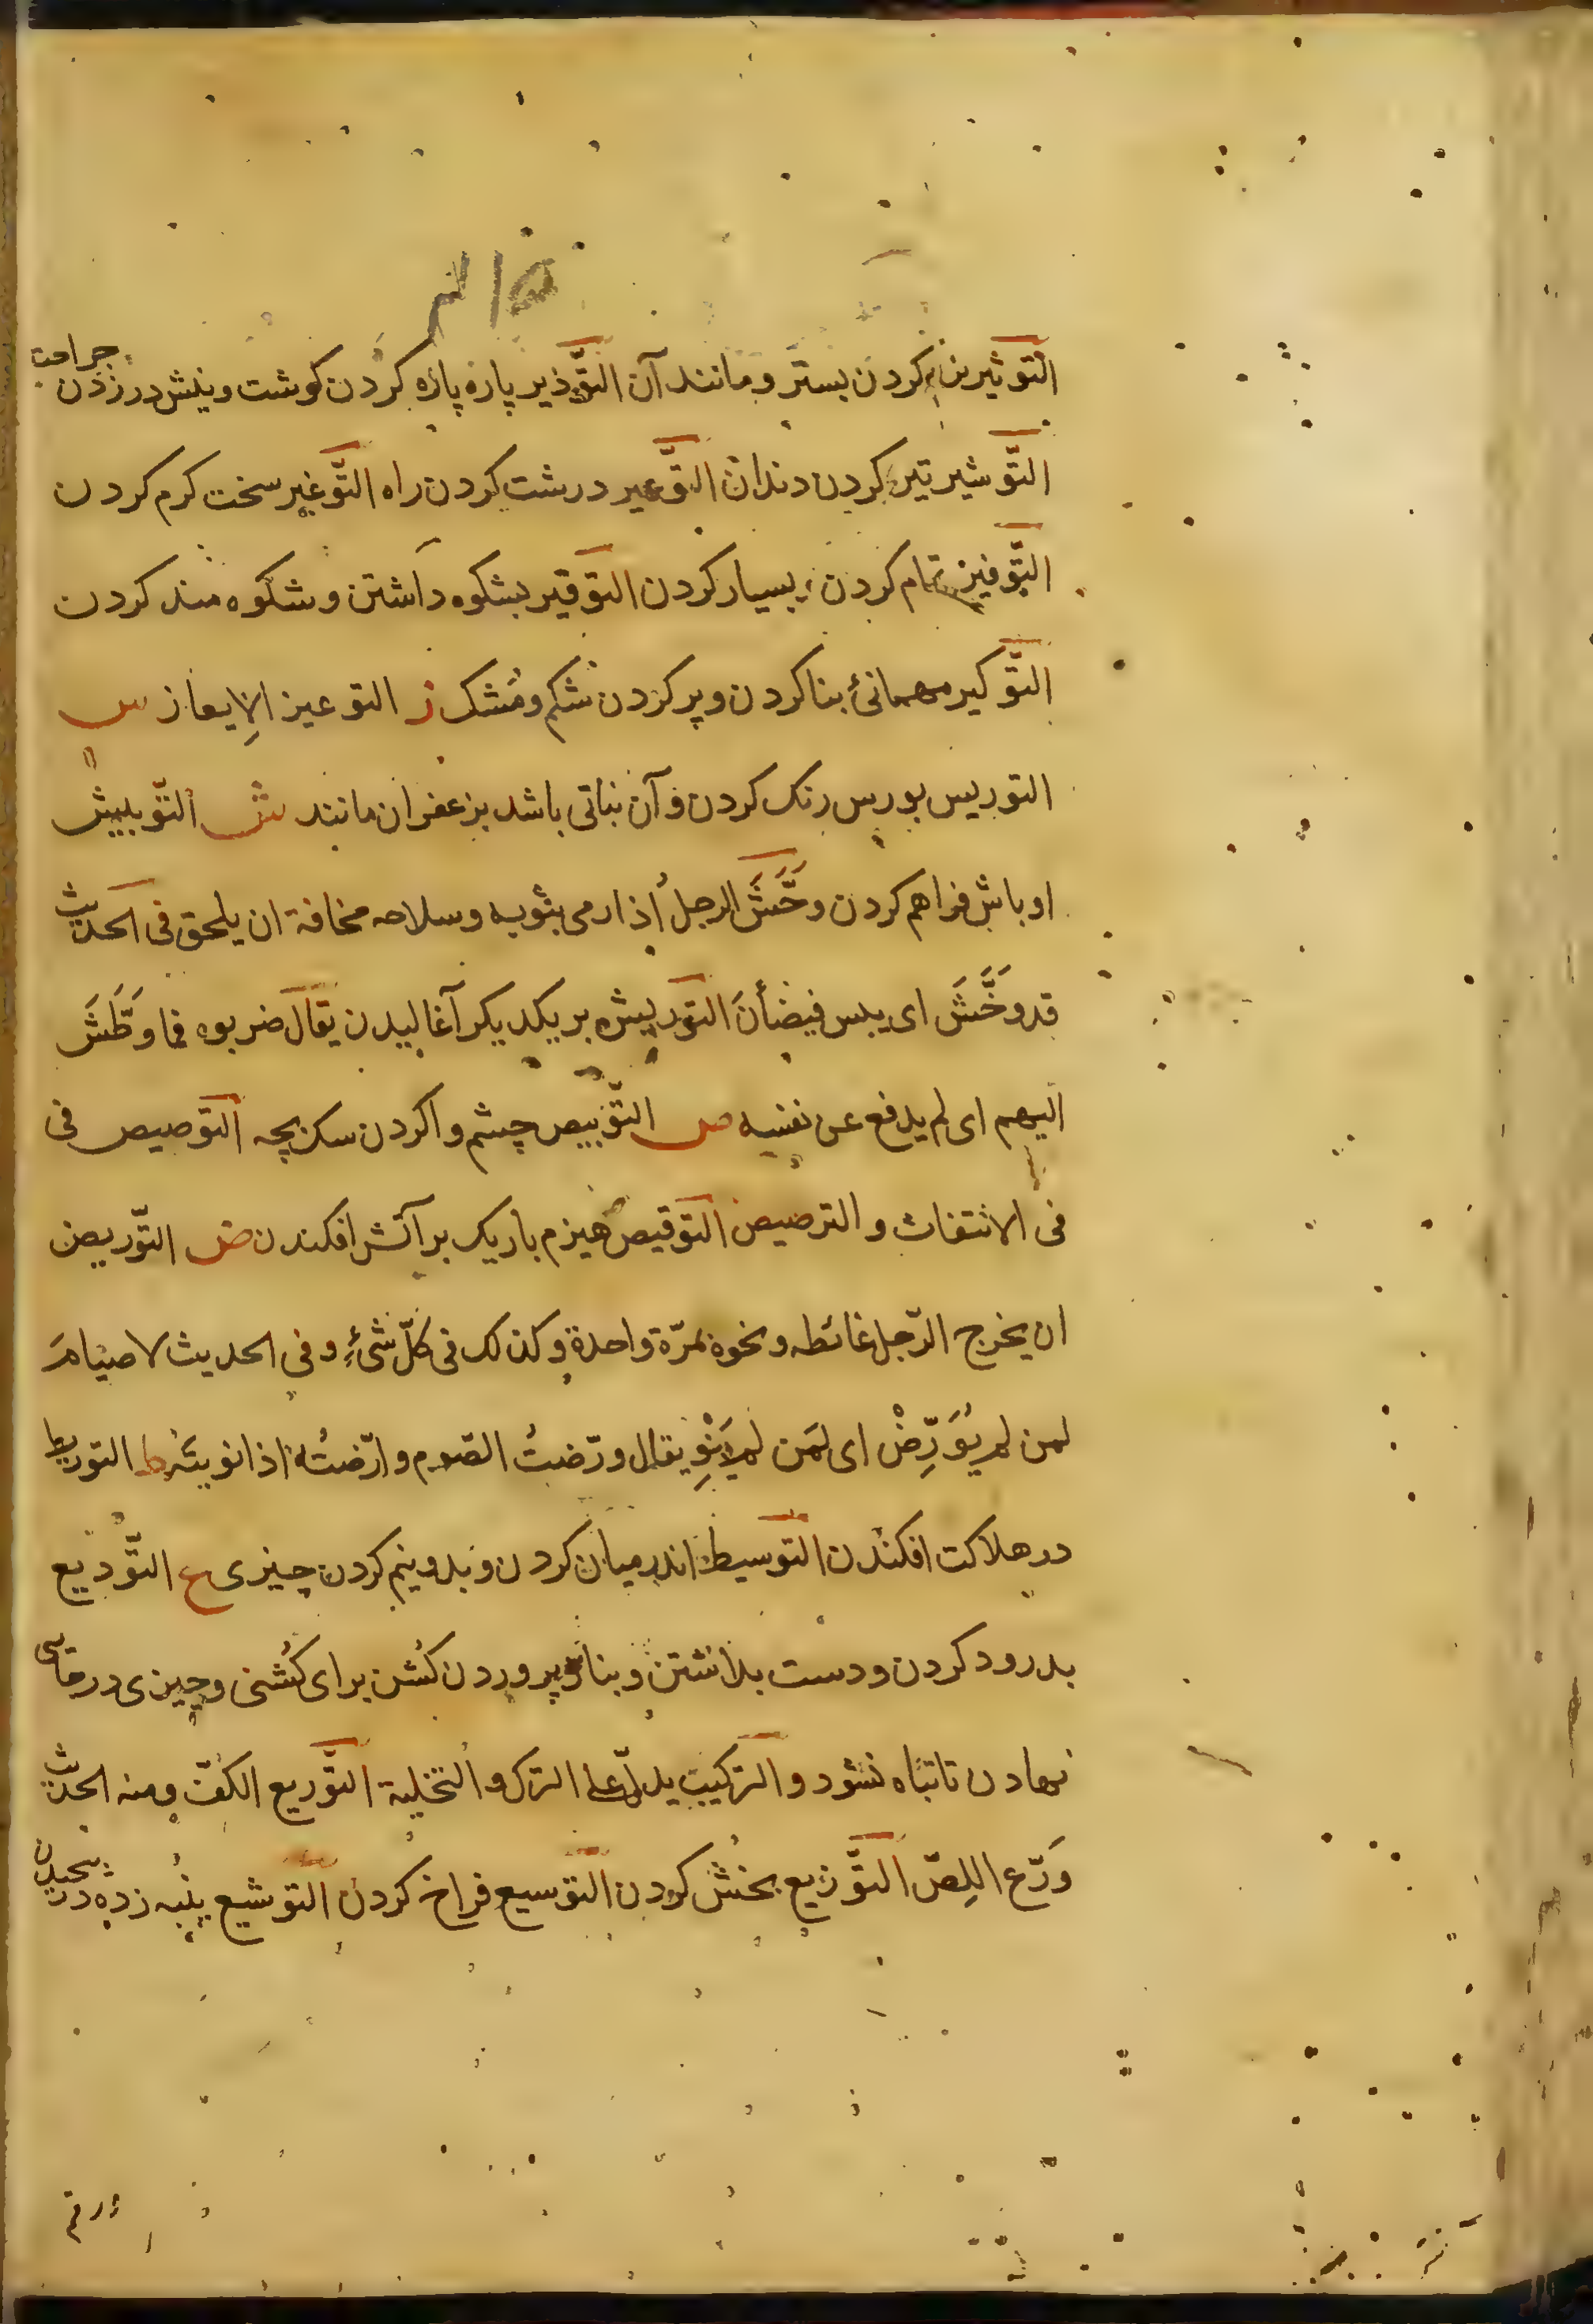 التوثیر نرم کردن بستر و مانند آن التّوذیر پاره پاره کردن کوشت و نیش در زدن جراحت
التّوشیر تیز کردن دندان التوّعیر درشت کردن راه التّوغیر سخت کرم کردن
التّوفیر تمام کردن بسیار کردن التوقیر بشکوه داشتن و شکوه مند کردن
التّوکیر مهمانئ بنا کردن و پر کردن شکم و مشک ز التوعیز الإیعاز س
التوریس بورس رنک کردن و آن نباتی باشد بزعفران مانند ش التّوبیش
اوباش فراهم کردن وحَّشَ الرجلُ اذا رمی بثوبه وسلاحه مخافة ان یلحق فی الحدیث
قد وَخَّشَ ای یبس فیضأنَ التوریش بر یکدیکر آغالیدن یقال ضربوه فما وَطَّشَ
الیهم ای لم یدفع عن نفسه ص التّوبیص چشم وا کردن سک بچه التوصیص فی
فی الانتقاث و الترصیص التوقیص هیزم باریک بر آتش افکندن ض التّوریض
ان یخرج الرّجل غائطه ونحوه بمرّة واحدة وکذلک فی کلّ شئٍ وفی الحدیث لا صیامَ
لمن لم یُوَرِّضْ ای لمن لم یَنْوِ یقال ورّضتُ الصّوم وارّضتُه اذا نویته ط التوریط
در هلاکت افکندن التوسیط اندر میان کردن و بدو نیم کردن چیزی ع التّودیع
بدرود کردن و دست بداشتن و بناز پروردن کشن برای کُشنی و چیزی در جای
نهادن تا تباه نشود و الترکیب یدلّ علی الترک و التخلیة التّوریع الکفّ ومنه الحدیث
وَرّع اللِصّ التّوزیع بخش کردن التوسیع فراخ کردن التوشیع پنبه زده در پیچیدن